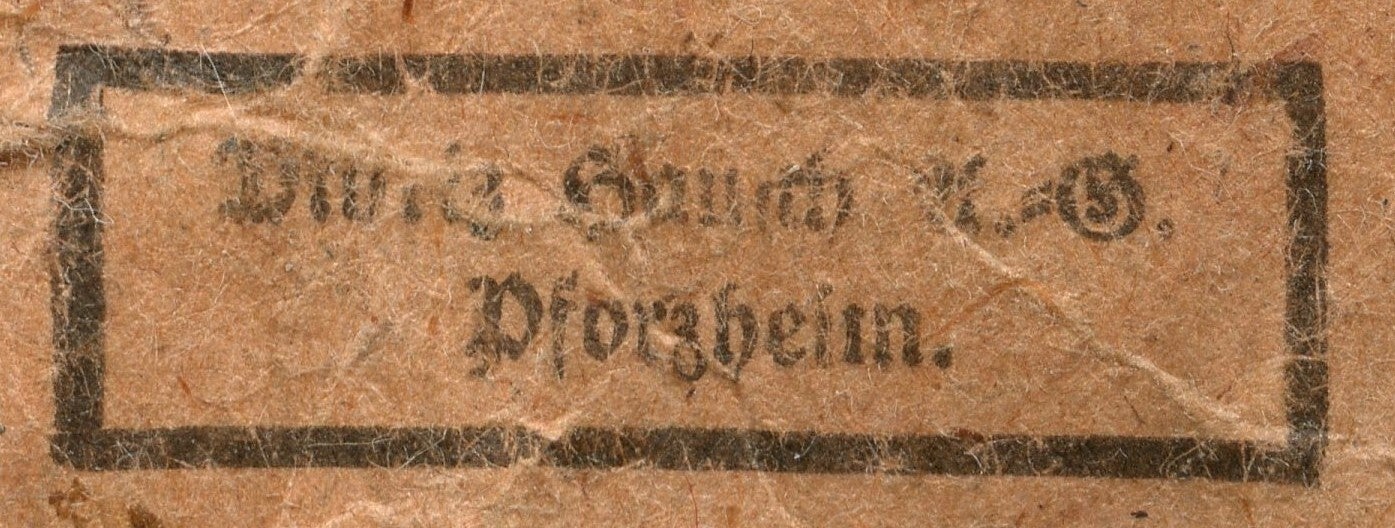 Moritz Hausch A.-G.
Pforzheim.